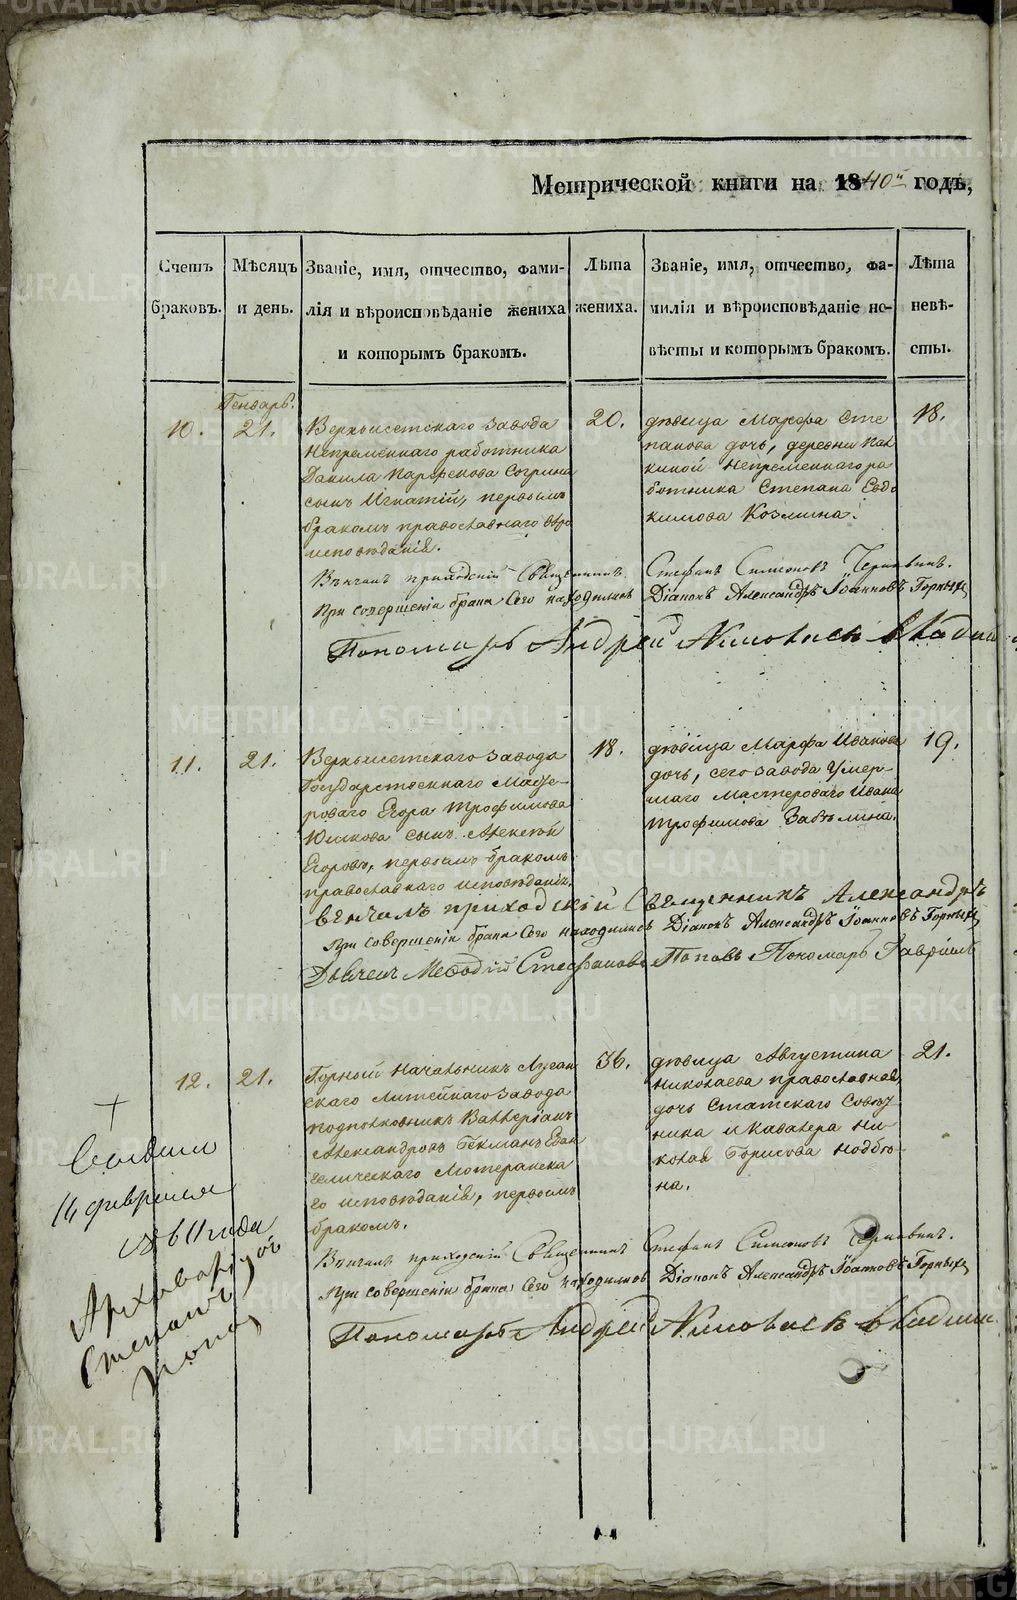 Метрической книги на 1840й годъ,
Счетъ браковъ.
Мѣсяцъ и день.
Званіе, имя, отчество, фами-
лія и вѣроисповѣданіе жениха
и которымъ бракомъ.
Лѣта жениха.
Званіе, имя, отчество, фа-
милія и вѣроисповѣданіе не-
вѣсты и которымъ бракомъ.
Лѣта невѣ-
сты.
Генварь.
10.
21.
Верхъисетскаго завода
Непременнаго работника
Данила Парфенова
сынъ Игнатій, первымъ
бракомъ православнаго веро
исповѣданія.
20.
дѣвица Марфа Сте
панова дочь, деревни
Непременнаго ра
ботника Степана Евдо
кимова Козмина.
18.
Вѣнчалъ приходскій Священникъ Стефанъ Симеоновъ Чернавинъ.
При совершеніи брака Сего находились Діаконъ Александръ Іоанновъ Горныхъ
Пономарь Андрей
11.
21.
Верхъисетскаго завода
Государственнаго Масте-
роваго Егора Трофимова
сынъ Алексей
Егоровъ, первымъ бракомъ
православнаго исповѣданія.
18.
дѣвица Марфа Иванова
дочь, сего завода Умер-
шаго Мастероваго Ивана
Трофимова
19.
вѣнчалъ приходскій Священникъ Александръ
При совершеніи брака Сего находились Діаконъ Александръ Іоанновъ Горныхъ
Дьячекъ Мефодій Стефановъ Поповъ Пономарь Гавріилъ
12.
21.
Горный Начальникъ Луган
скаго литейнаго завода
подполковникъ Валлеріанъ
Александровъ Гекманъ Еван
гелическаго Лютеранска
го исповѣданія, первымъ
бракомъ.
36.
дѣвица Августина
Николаева православная,
дочь Статскаго Совѣт
ника и Кавалера Ни
колая Борисова
21.
Вѣнчалъ приходскій Священникъ Стефанъ Симеоновъ Чернавинъ.
При совершеніи брака Сего находились Діаконъ Александръ Іоанновъ Горныхъ
Пономарь Андрей
14 февраля
года
Архиваріусъ
Степанъ
METRIKI.GASO-URAL.RU